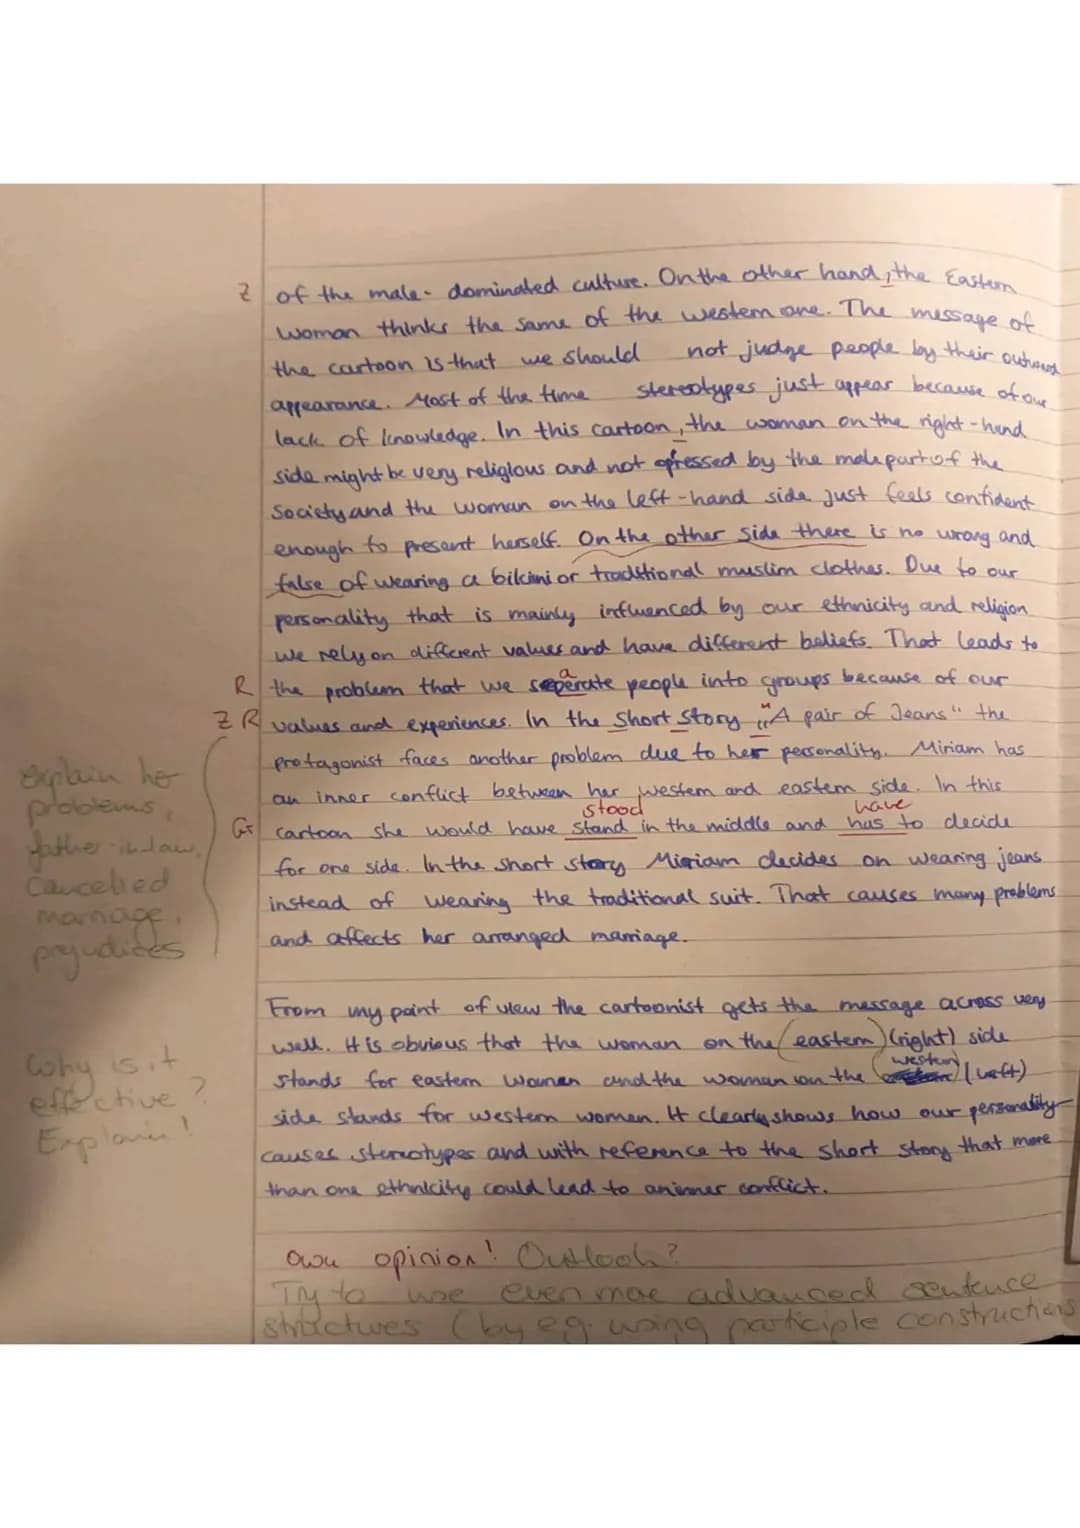 Z of the male- dominated culture. On the other hand, the Eastern
woman thinks the same of the western one. The message of
the cartoon is that we should not judge people by their outward
appearance. Most of the time stereotypes just appear because of our
lack of knowledge. In this cartoon, the woman on the right-hand
side might be very religious and not opressed by the male part of the
society and the woman on the left-hand side just feels confident
enough to present herself. On the other side there is no wrong and
false of wearing a bikini or traditional muslim clothes. Due to our
personality that is mainly influenced by our ethnicity and religion
we rely on different values and have different beliefs. That leads to
a
R the problem that we seperate people into groups because of our
Z R values and experiences. In the Short Story "„A pair of Jeans" the
protagonist faces another problem due to her personality. Miriam has
an inner conflict between her western and eastern side. In this
stood have
Gr cartoon she would have stand in the middle and has to decide
for one side. In the short story Miriam decides on wearing jeans
instead of wearing the traditional suit. That causes many problems
and affects her arranged marriage.
explain her
problems,
father-in-law,
Cancelled
marriage,
prejudices
From my point of view the cartoonist gets the message across very
well. It is obvious that the woman on the (eastern) (right) side
western
stands for eastern women and the woman on the (left)
side stands for western women. It clearly shows how our personality
causes stereotypes and with reference to the short story that more
than one ethnicity could lead to an inner conflict.
Why is it
effective?
Explain!
own opinion! Outlook?
Try to use even more advanced sentence
structures (by eg. using participle constructions